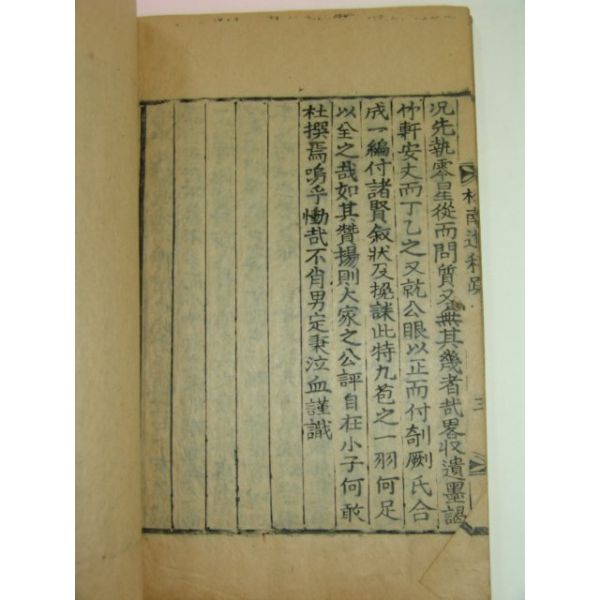 况先執零星從而問質又無其幾者哉畧収遺墨謁
竹軒安丈而丁乙之又就公眼以正而付剞劂氏合
成一編付諸賢叙狀及挽誄此特九苞之一羽何足
以全之哉如其贊揚則大家之公評自在小子何敢
杜撰焉嗚乎慟哉不肖男定秉泣血謹識
三